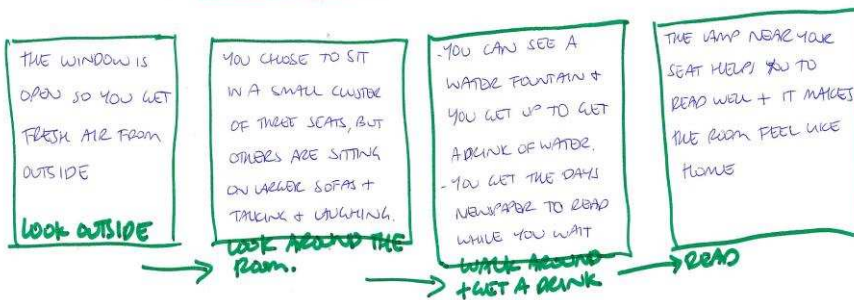 THE WINDOW IS
OPEN SO YOU GET
FRESH AIR FROM
OUTSIDE
LOOK OUTSIDE
YOU CHOSE TO SIT
IN A SMALL CLUSTER
OF THREE SEATS, BUT
OTHERS ARE SITTING
ON LARGER SOFAS +
TALKING + LAUGHING.
LOOK AROUND THE
ROOM.
- YOU CAN SEE A
WATER FOUNTAIN +
YOU GET UP TO GET
A DRINK OF WATER.
- YOU GET THE DAYS
NEWSPAPER TO READ
WHILE YOU WAIT
WALK AROUND
+ GET A DRINK
THE LAMP NEAR YOUR
SEAT HELPS YOU TO
READ WELL + IT MAKES
THE ROOM FEEL LIKE
HOME
READ